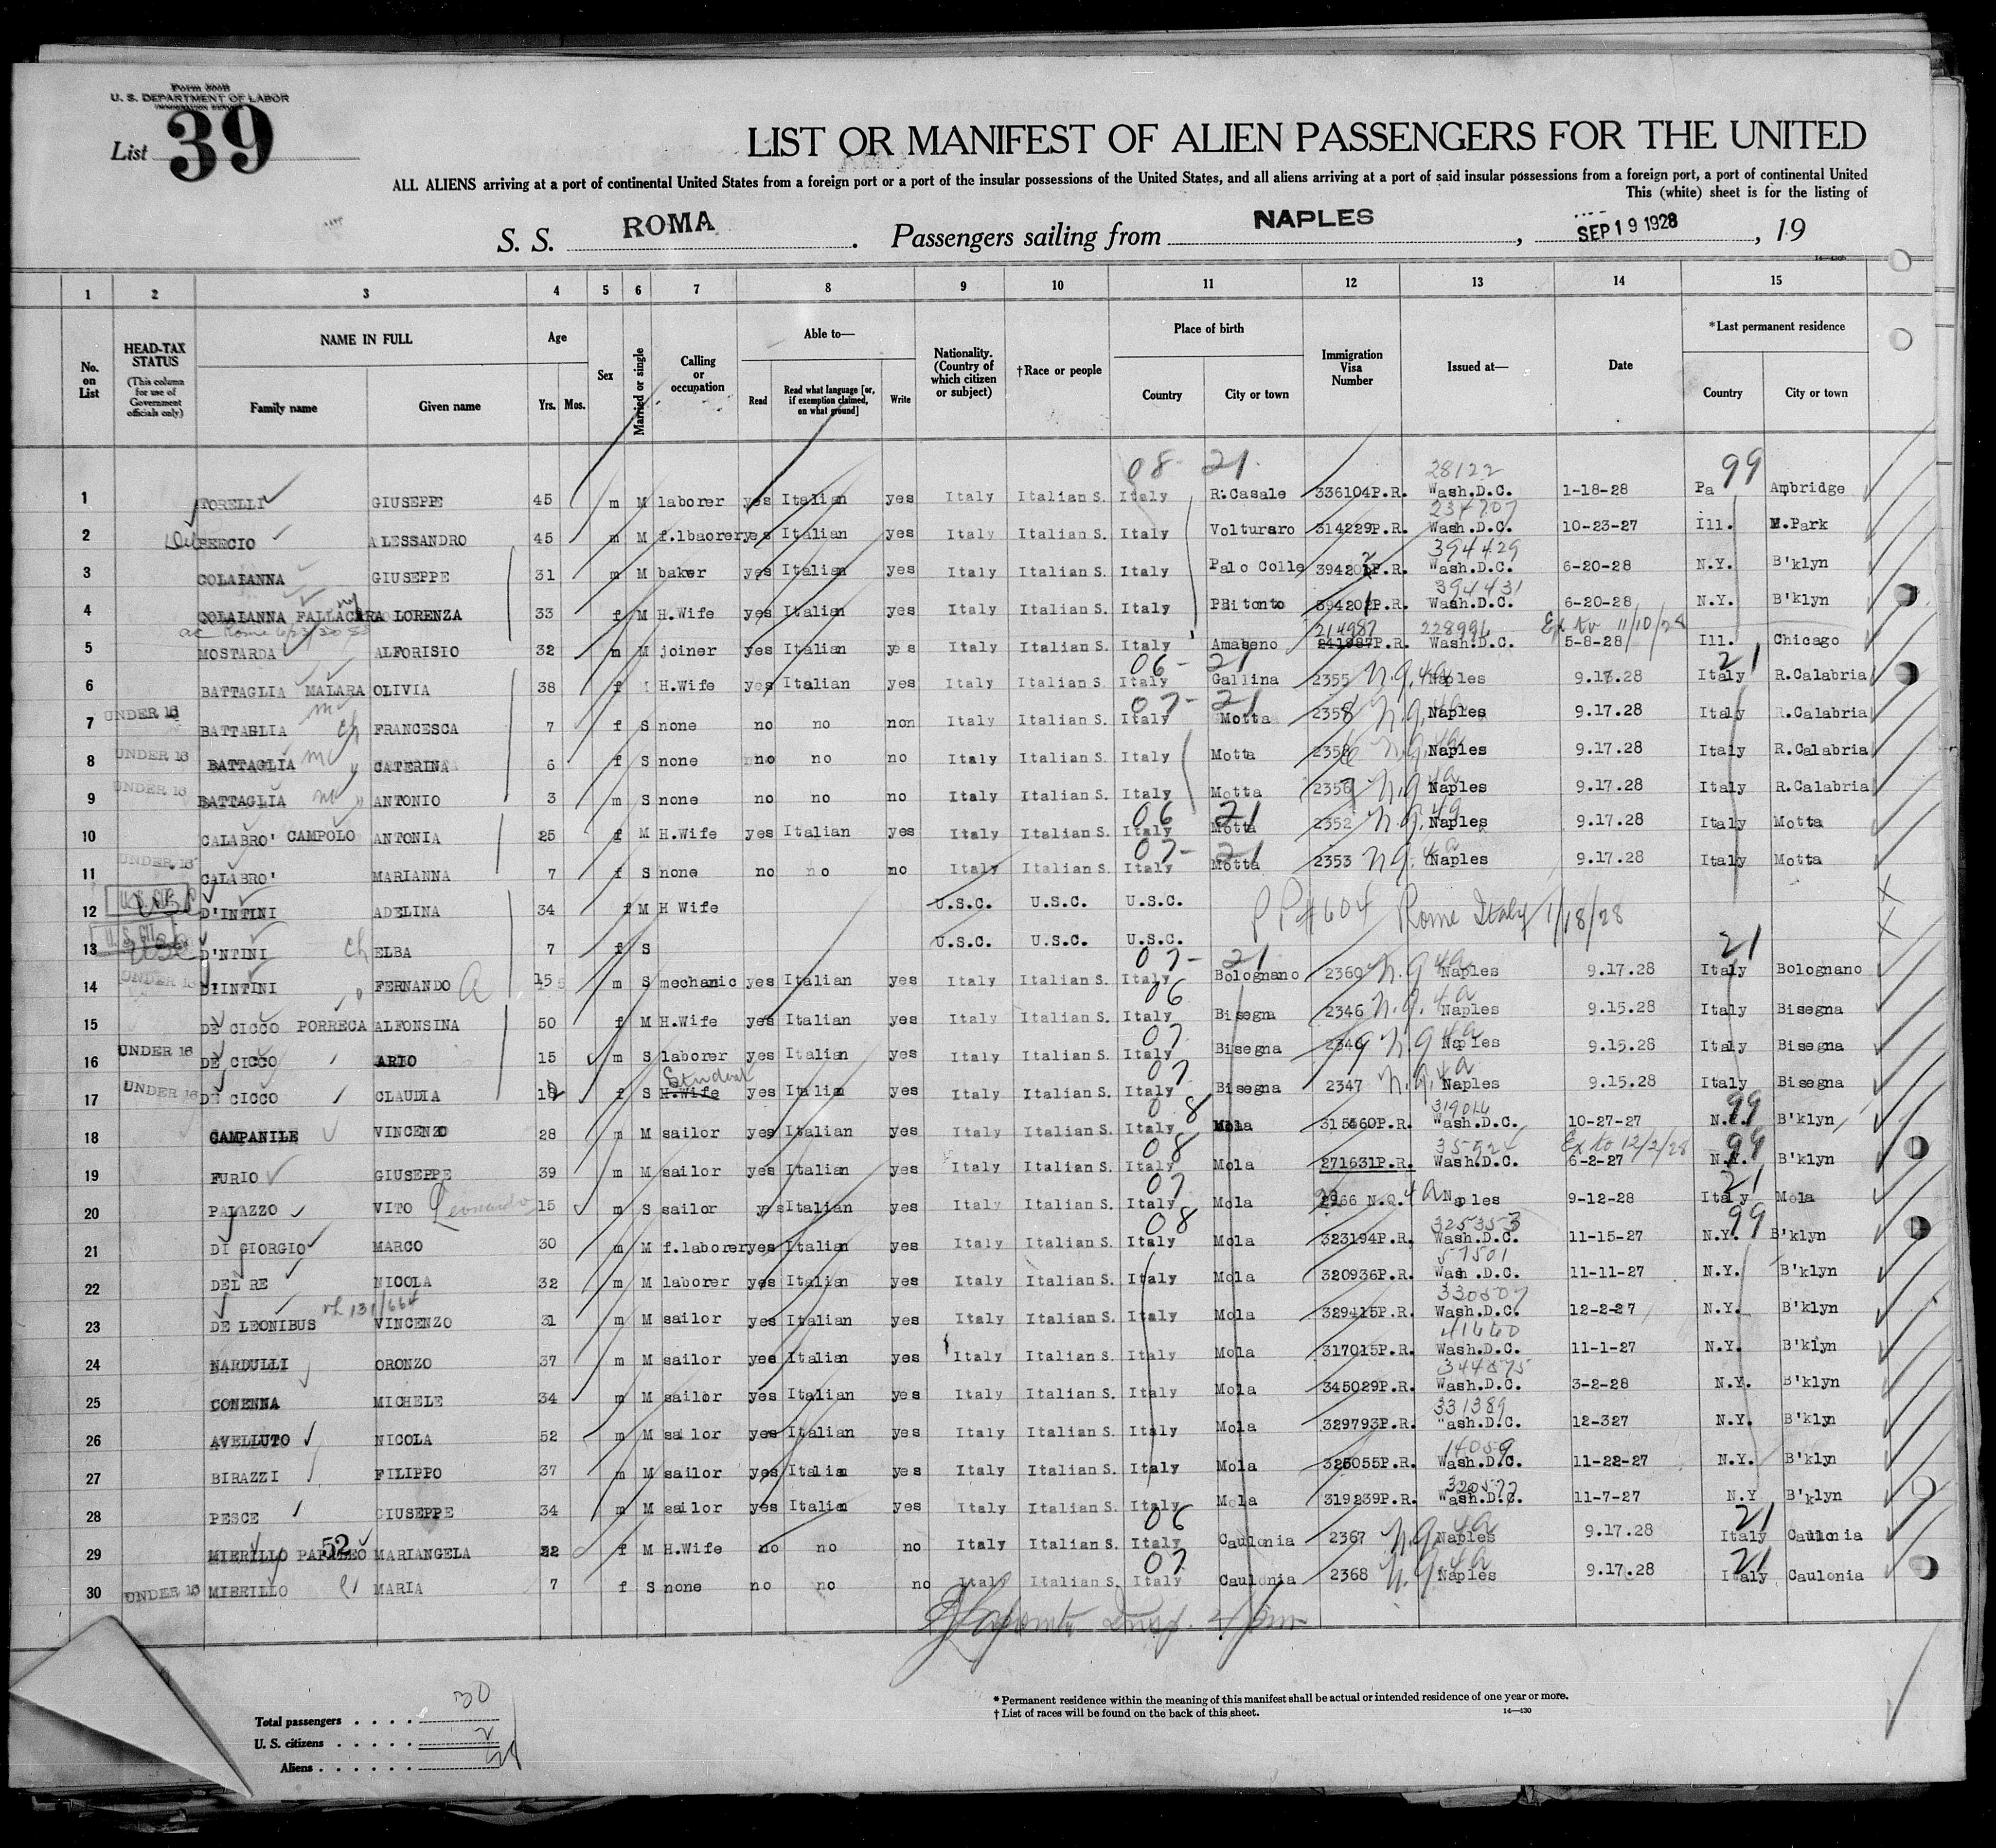 Form 500B
U. S. DEPARTMENT OF LABOR
IMMIGRATION SERVICE
List 39
LIST OR MANIFEST OF ALIEN PASSENGERS FOR THE UNITED
ALL ALIENS arriving at a port of continental United States from a foreign port or a port of the insular possessions of the United States, and all aliens arriving at a port of said insular possessions from a foreign port, a port of continental United
This (white) sheet is for the listing of
S. S. ROMA . Passengers sailing from NAPLES , SEP 19 1928 , 19
1 2 3 4 5 6 7 8 9 10 11 12 13 14 15
No. on List
HEAD-TAX STATUS (This column for use of Government officials only)
NAME IN FULL Family name Given name
Age Yrs. Mos.
Sex
Married or single
Calling or occupation
Able to— Read Read what language [or, if exemption claimed, on what ground] Write
Nationality. (Country of which citizen or subject)
†Race or people
Place of birth Country City or town
Immigration Visa Number
Issued at—
Date
*Last permanent residence Country City or town
08- 21. 28122 99
1 TORELLI GIUSEPPE 45 m M laborer yes Italian yes Italy Italian S. Italy R.Casale 336104P.R. Wash.D.C. 1-18-28 Pa Ambridge
234707
2 Del PERCIO ALESSANDRO 45 m M f.lbaorer yes Italian yes Italy Italian S. Italy Volturaro 314229P.R. Wash.D.C. 10-23-27 Ill. M.Park
394429
3 COLAIANNA GIUSEPPE 31 m M baker yes Italian yes Italy Italian S. Italy Palo Colle 394202P.R. Wash.D.C. 6-20-28 N.Y. B'klyn
394431
4 COLAIANNA FALLACARA LORENZA 33 f M H.Wife yes Italian yes Italy Italian S. Italy Bitonto 394201P.R. Wash.D.C. 6-20-28 N.Y. B'klyn
214987 228996 Ex to 11/10/28
5 MOSTARDA ALFORISIO 32 m M joiner yes Italian yes Italy Italian S. Italy Amaseno 241987P.R. Wash.D.C. 5-8-28 Ill. Chicago
06- 21 21
6 BATTAGLIA MALARA OLIVIA 38 f H.Wife yes Italian yes Italy Italian S. Italy Gallina 2355 N.Q.4a Naples 9.17.28 Italy R.Calabria
07- 21
7 UNDER 16 BATTAGLIA ch FRANCESCA 7 f S none no no non Italy Italian S. Italy Motta 2358 N.Q.4a Naples 9.17.28 Italy R.Calabria
8 UNDER 16 BATTAGLIA " CATERINA 6 f S none no no no Italy Italian S. Italy Motta 2356 N.Q.4a Naples 9.17.28 Italy R.Calabria
9 UNDER 16 BATTAGLIA " ANTONIO 3 m S none no no no Italy Italian S. Italy Motta 2357 N.Q.4a Naples 9.17.28 Italy R.Calabria
06 21
10 CALABRO' CAMPOLO ANTONIA 25 f M H.Wife yes Italian yes Italy Italian S. Italy Motta 2352 N.Q.4a Naples 9.17.28 Italy Motta
07- 21
11 UNDER 16 CALABRO' MARIANNA 7 f S none no no no Italy Italian S. Italy Motta 2353 N.Q.4a Naples 9.17.28 Italy Motta
12 U.S. CIT. USC D'INTINI ADELINA 34 f M H Wife U.S.C. U.S.C. U.S.C. PP#604 Rome Italy 1/18/28
13 U.S. CIT. USC D'NTINI ch ELBA 7 f S U.S.C. U.S.C. U.S.C.
07- 21 21
14 UNDER 16 D'INTINI " FERNANDO A 15 m S mechanic yes Italian yes Italy Italian S. Italy Bolognano 2360 N.Q.4a Naples 9.17.28 Italy Bolognano
06
15 DE CICCO PORRECA ALFONSINA 50 f M H.Wife yes Italian yes Italy Italian S. Italy Bisegna 2346 N.Q.4a Naples 9.15.28 Italy Bisegna
07
16 UNDER 16 DE CICCO ARIO 15 m S laborer yes Italian yes Italy Italian S. Italy Bisegna 2349 N.Q.4a Naples 9.15.28 Italy Bisegna
Student 07
17 UNDER 16 DE CICCO CLAUDIA 12 f S H.Wife yes Italian yes Italy Italian S. Italy Bisegna 2347 N.Q.4a Naples 9.15.28 Italy Bisegna
08 319016 99
18 CAMPANILE VINCENZO 28 m M sailor yes Italian yes Italy Italian S. Italy Mola 315460P.R. Wash.D.C. 10-27-27 N.Y. B'klyn
08 35924 Ex to 12/2/28 99
19 FURIO GIUSEPPE 39 m M sailor yes Italian yes Italy Italian S. Italy Mola 271631P.R. Wash.D.C. 6-2-27 N.Y. B'klyn
07 21
20 PALAZZO VITO Leonardo 15 m S sailor yes Italian yes Italy Italian S. Italy Mola 2966 N.Q.4a Naples 9-12-28 Italy Mola
08 325353 99
21 DI GIORGIO MARCO 30 m M f.laborer yes Italian yes Italy Italian S. Italy Mola 323194P.R. Wash.D.C. 11-15-27 N.Y. B'klyn
57501
22 DEL RE NICOLA 32 m M laborer yes Italian yes Italy Italian S. Italy Mola 320936P.R. Wash.D.C. 11-11-27 N.Y. B'klyn
131/664 330807
23 DE LEONIBUS VINCENZO 31 m M sailor yes Italian yes Italy Italian S. Italy Mola 329415P.R. Wash.D.C. 12-2-27 N.Y. B'klyn
41660
24 NARDULLI ORONZO 37 m M sailor yes Italian yes Italy Italian S. Italy Mola 317015P.R. Wash.D.C. 11-1-27 N.Y. B'klyn
344875
25 CONENNA MICHELE 34 m M sailor yes Italian yes Italy Italian S. Italy Mola 345029P.R. Wash.D.C. 3-2-28 N.Y. B'klyn
331389
26 AVELLUTO NICOLA 52 m M sailor yes Italian yes Italy Italian S. Italy Mola 329793P.R. "ash.D.C. 12-327 N.Y. B'klyn
14059
27 BIRAZZI FILIPPO 37 m M sailor yes Italian yes Italy Italian S. Italy Mola 325055P.R. Wash.D.C. 11-22-27 N.Y. B'klyn
320577
28 PESCE GIUSEPPE 34 m M sailor yes Italian yes Italy Italian S. Italy Mola 319239P.R. Wash.D.C. 11-7-27 N.Y B'klyn
52 06 21
29 MIERILLO PAPALEO MARIANGELA 32 f M H.Wife no no no Italy Italian S. Italy Caulonia 2367 N.Q.4a Naples 9.17.28 Italy Caulonia
07 21
30 UNDER 16 MIERILLO MARIA 7 f S none no no no Italy Italian S. Italy Caulonia 2368 N.Q.4a Naples 9.17.28 Italy Caulonia
Total passengers . . . . 30
U. S. citizens . . . . . 2
Aliens . . . . . . 28
* Permanent residence within the meaning of this manifest shall be actual or intended residence of one year or more.
† List of races will be found on the back of this sheet.
14—430